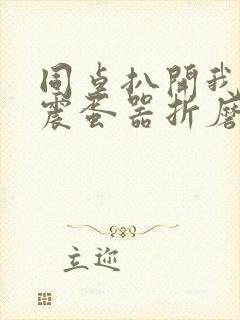 同桌扒開我
震蛋器折磨
立迩